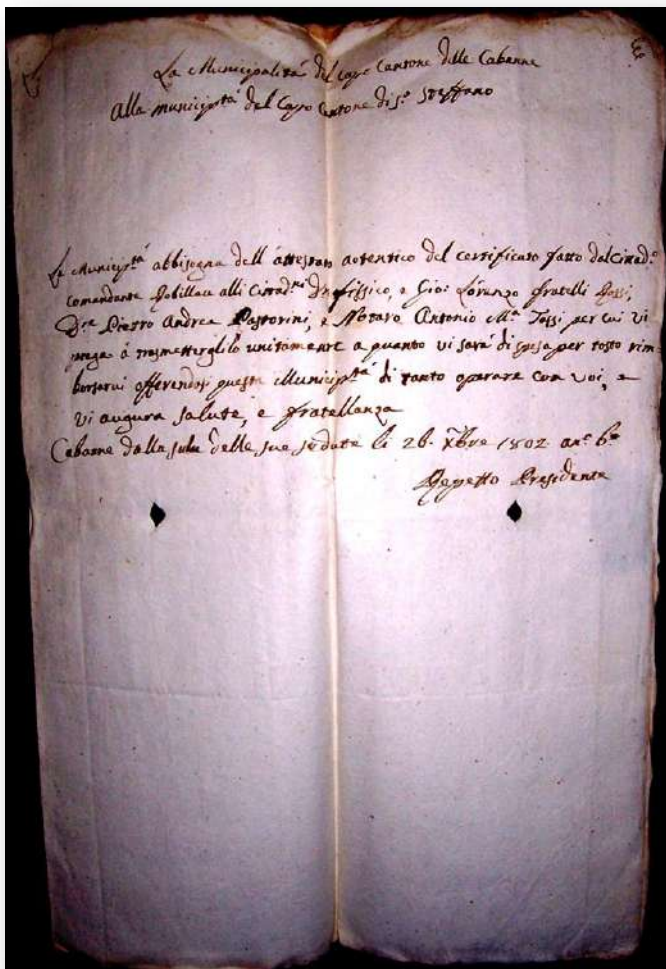 La Municipalità del capo Cantone delle Cabanne
Alla municiptà del Capo Cantone di Sto Steffano
La Municiptà abbisogna dell'attestato autentico del certificato fatto dal Cittad.o
comandante alli Cittad.ni Dr. fissico, e Gio: Lorenzo fratelli Rossi,
Pietro Andrea Pastorini, e Notaro Antonio Ma Tossi per cui vi
prega à trasmetterglilo unitamente a quanto vi sarà di spesa per tosto rim
borsarvi offerendosi questa Municiptà di tanto operare con voi, e
vi augura salute, e fratellanza
Cabanne dalla sala delle sue sedute li 26. Xbre 1802 an.o 6.o
Repetto Presidente